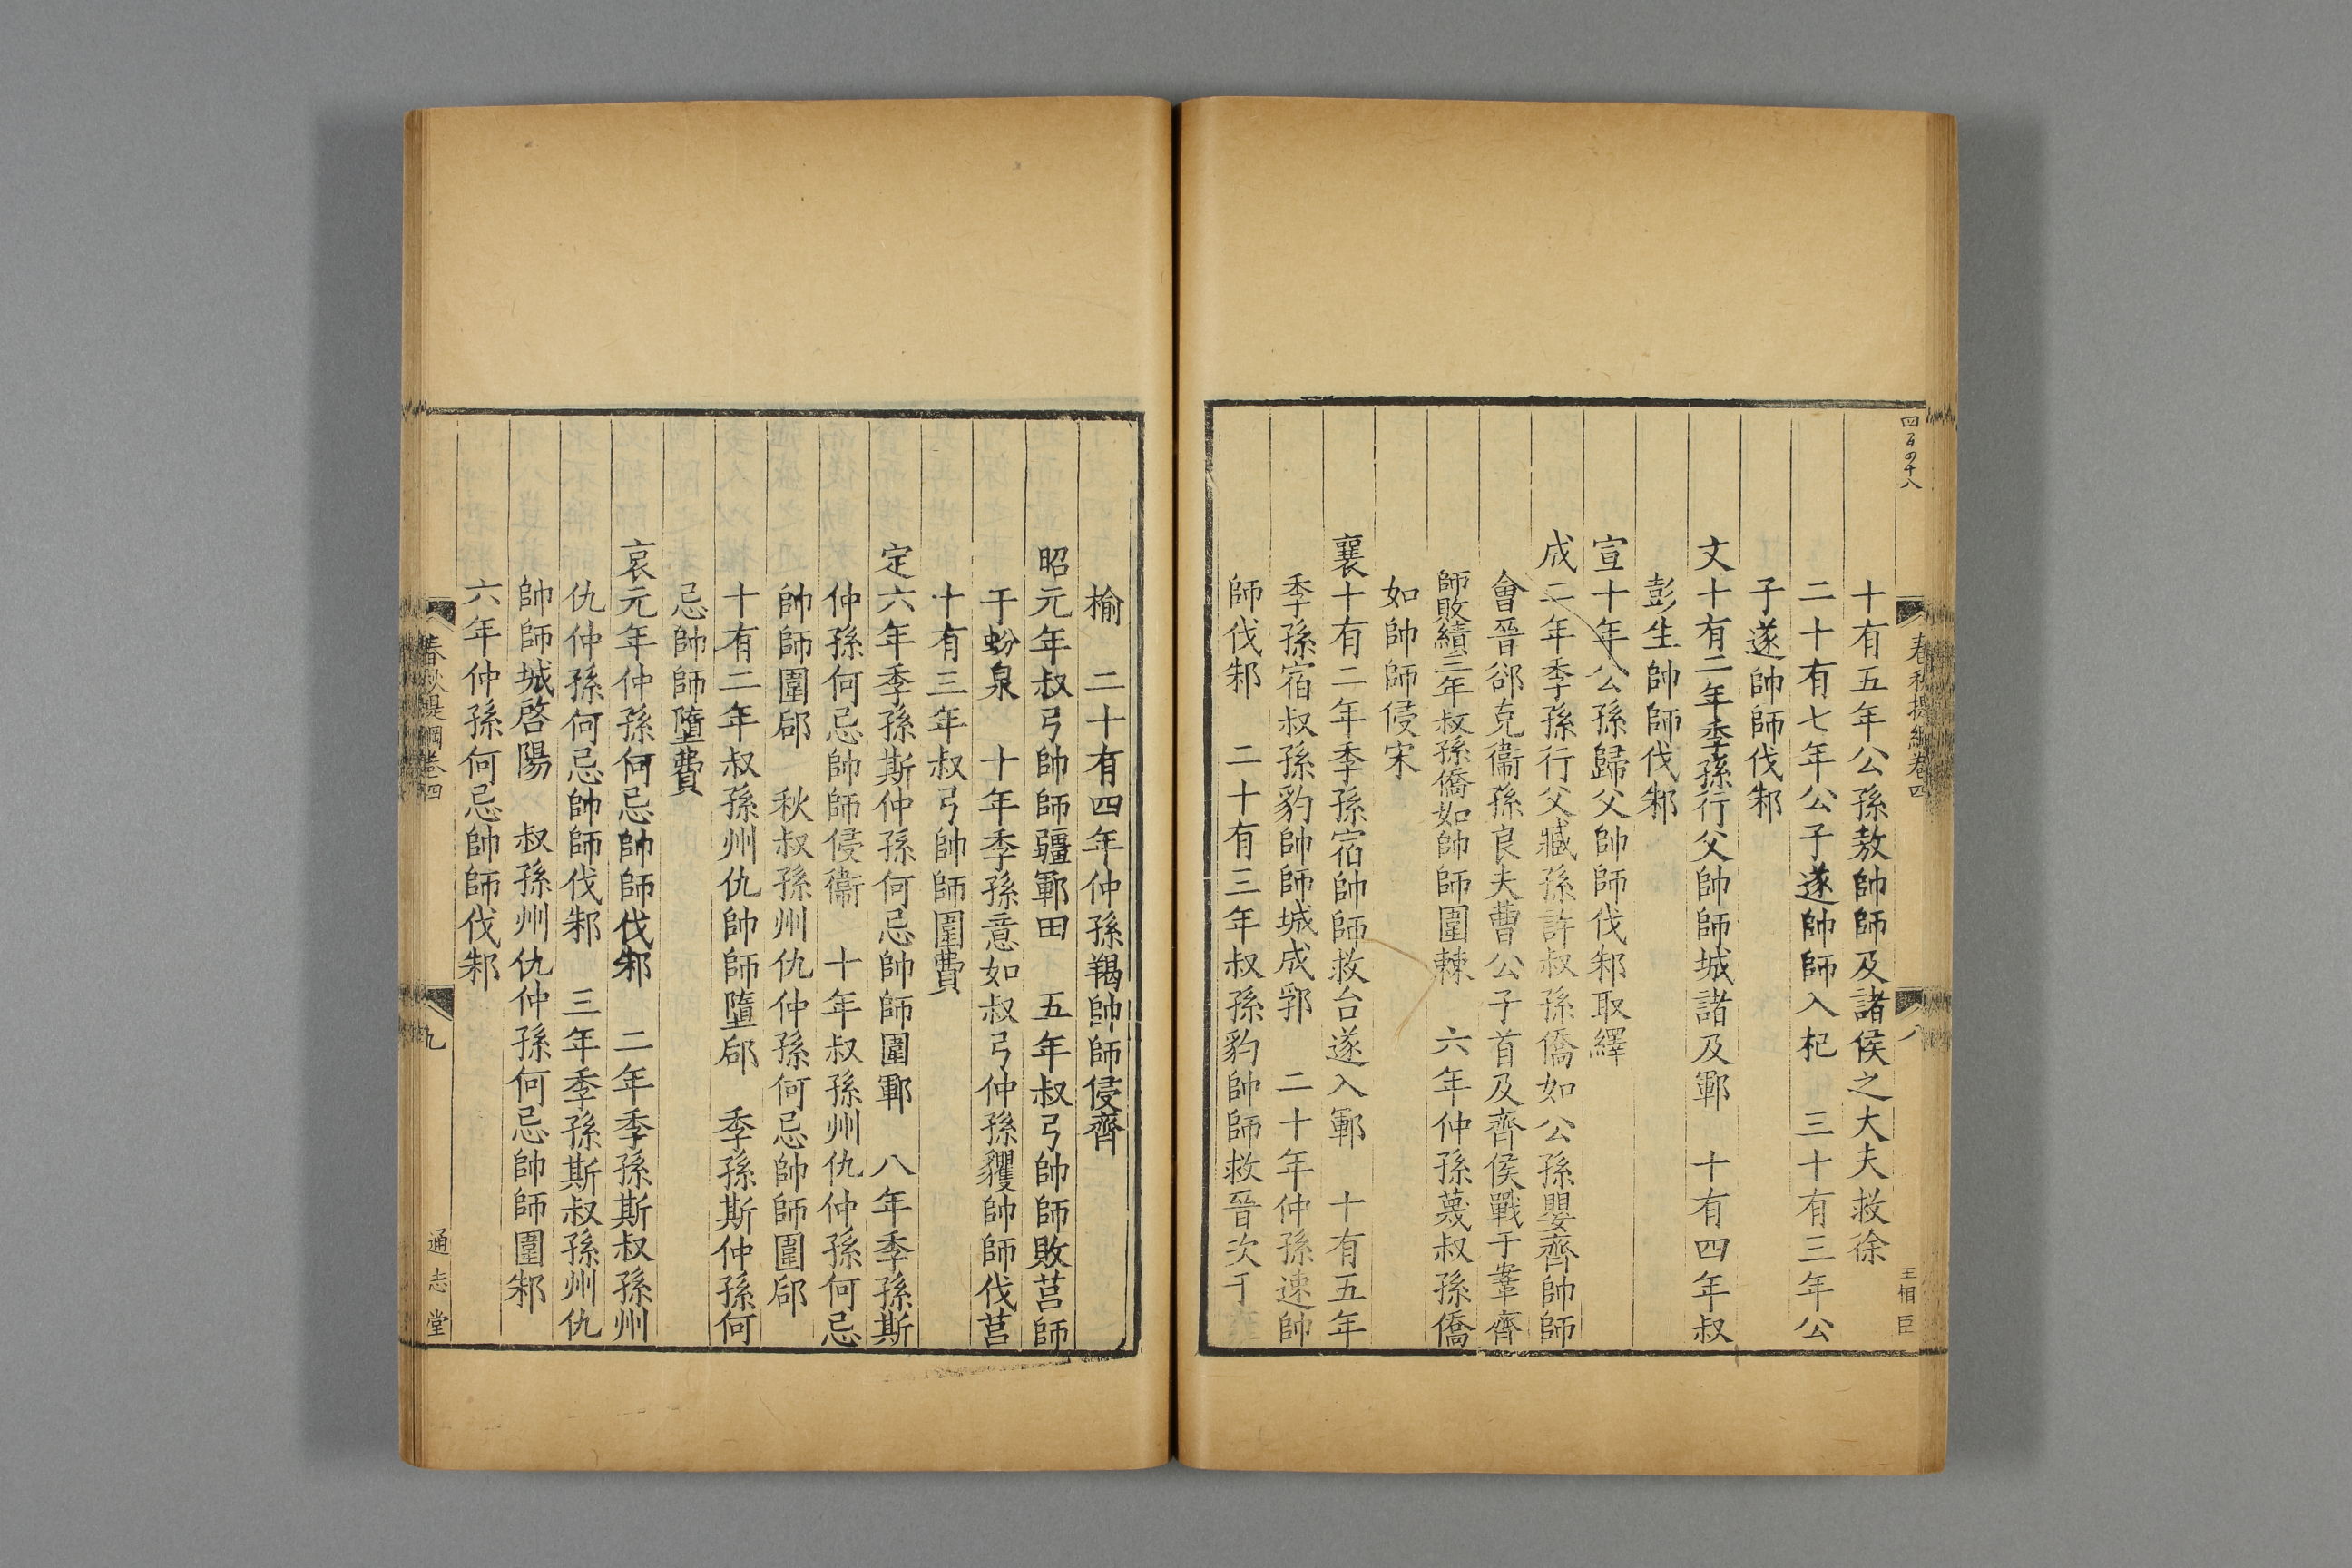 四百四十八
春秋提綱卷四
八
王相臣
十有五年公孫敖帥師及諸侯之大夫救徐
二十有七年公子遂帥師入杞 三十有三年公
子遂帥師伐邾
文十有二年季孫行父帥師城諸及鄆 十有四年叔
彭生帥師伐邾
宣十年公孫歸父帥師伐邾取繹
成二年季孫行父臧孫許叔孫僑如公孫嬰齊帥師
會晉郤克衞孫良夫曹公子首及齊侯戰于鞌齊
師敗績三年叔孫僑如帥師圍棘 六年仲孫蔑叔孫僑
如帥師侵宋
襄十有二年季孫宿帥師救台遂入鄆 十有五年
季孫宿叔孫豹帥師城成郛 二十年仲孫速帥
師伐邾 二十有三年叔孫豹帥師救晉次于雍
榆 二十有四年仲孫羯帥師侵齊
昭元年叔弓帥師疆鄆田 五年叔弓帥師敗莒師
于蚡泉 十年季孫意如叔弓仲孫貜帥師伐莒
十有三年叔弓帥師圍費
定六年季孫斯仲孫何忌帥師圍鄆 八年季孫斯
仲孫何忌帥師侵衞 十年叔孫州仇仲孫何忌
帥師圍郈 秋叔孫州仇仲孫何忌帥師圍郈
十有二年叔孫州仇帥師墮郈 季孫斯仲孫何
忌帥師墮費
哀元年仲孫何忌帥師伐邾 二年季孫斯叔孫州
仇仲孫何忌帥師伐邾 三年季孫斯叔孫州仇
帥師城啓陽 叔孫州仇仲孫何忌帥師圍邾
六年仲孫何忌帥師伐邾
春秋提綱卷四
九
通志堂